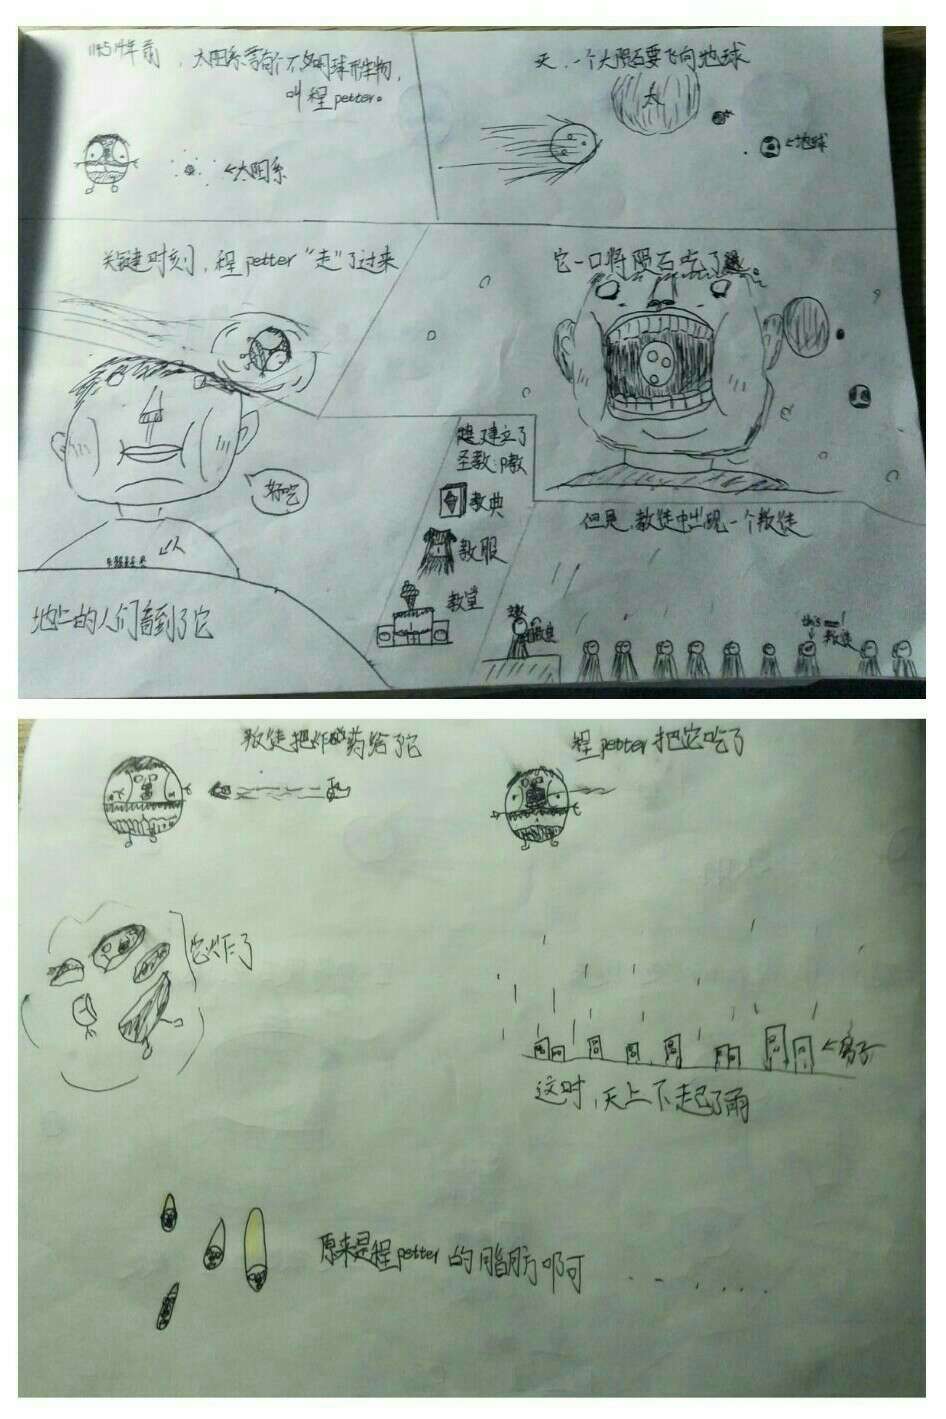 114514年前,太阳系旁有个不知名球形生物,
叫程petter。
←太阳系
天,一个大陨石要飞向地球
太
←地球
关键时刻,程petter“走”了过来
好吃
人
地上的人们看到了它
它一口将陨石吃了
建立了
圣教:P教
教典
教服
教堂
但是,教徒中出现一个叛徒
教徒
this one!
叛徒
叛徒把炸药给了它
程petter把它吃了
它炸了
←房子
这时,天上下起了雨
原来是程petter的脂肪啊......